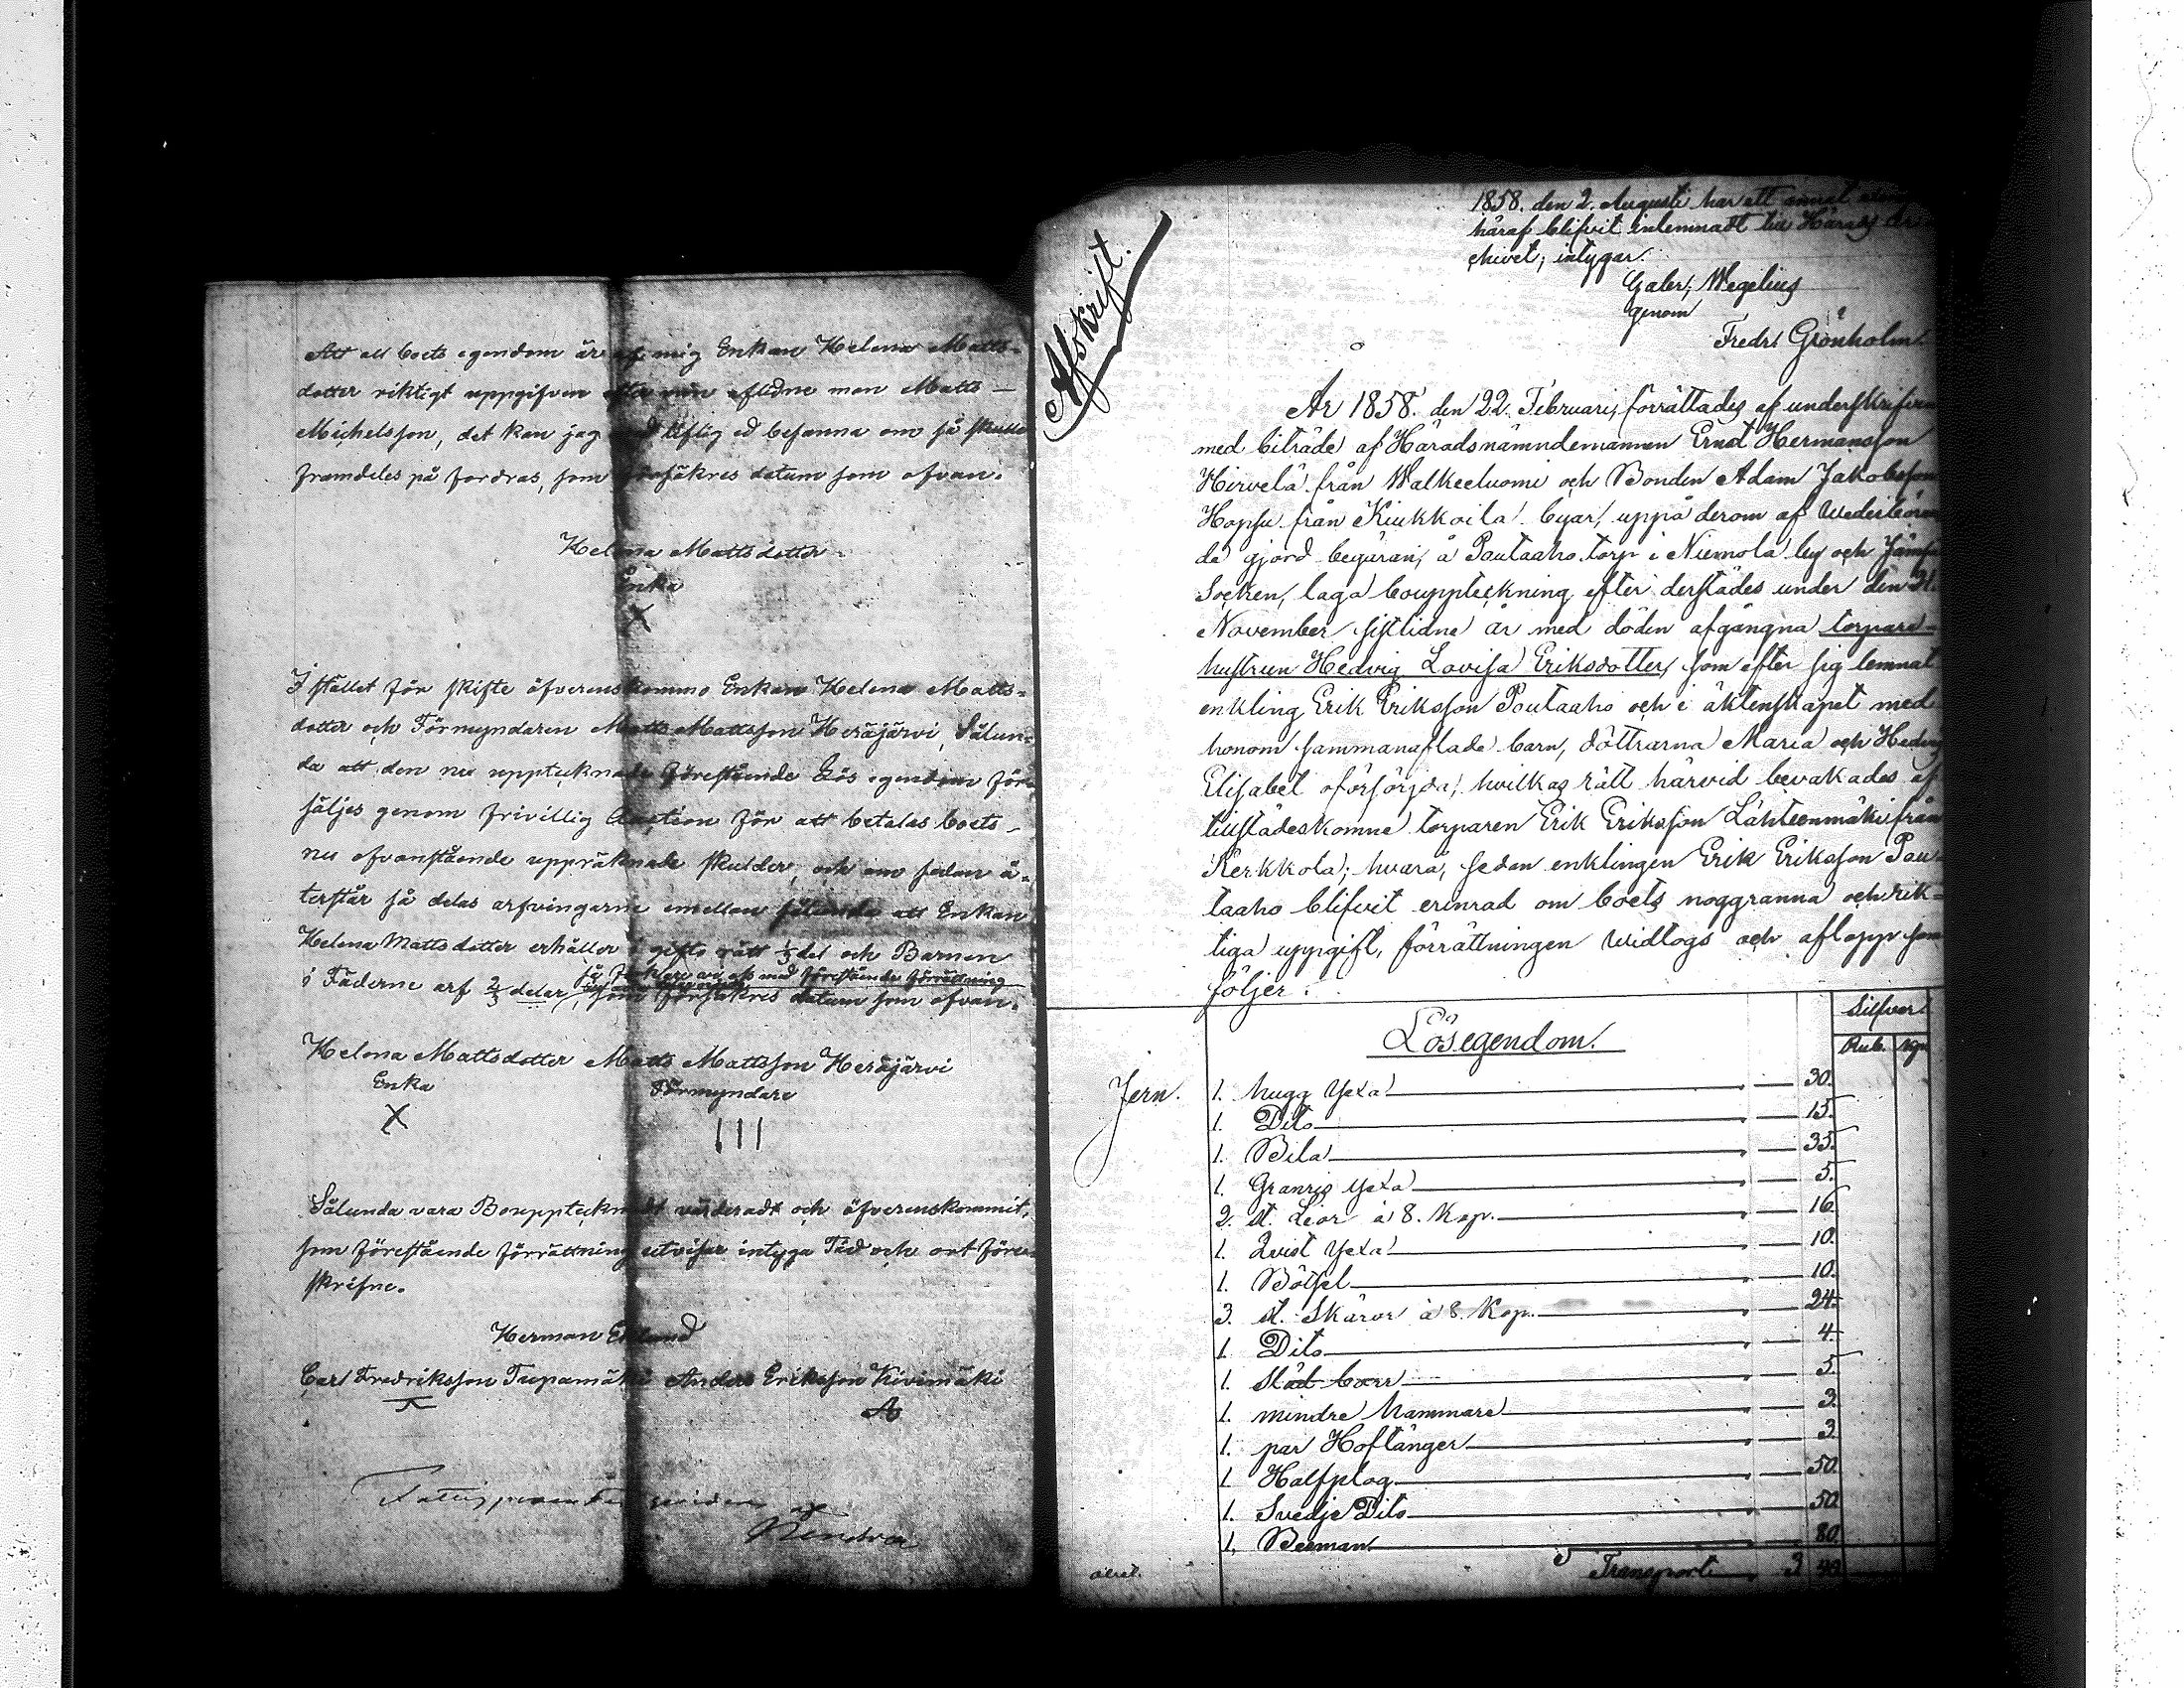 Att all boets egendom är af mig Enkan Helena Matts-
dotter riktigt uppgifven efter min aflidne man Matts
Michelsson, det kan jag med liflig ed besanna om så skulle
framdeles på fordras, som försäkres datum som ofvan.
Helena Mattsdotter
Enka
X
I stället för skifte öfverenskommo Enkan Helena Matts-
dotter och Förmyndaren Matts Mattsson Heräjärvi, Sålun-
da att den nu upptecknade förestående Lös egendom för-
säljes genom frivillig Auction för att betalas boets
nu ofvanstående uppräknade skulder, och om sedan å-
terstår så delas arfvingarne emellan sålunda att Enkan
Helena Mattsdotter erhåller i gifto rätt 1/3 del och Barnen
i Fäderne arf 2/3 delar, så förklare vi oss med förestående förrättning
som försäkres datum som ofvan.
Helena Mattsdotter Matts Mattsson Heräjärvi
Enka Förmyndare
X III
Sålunda vara Boupptecknadt värderadt och öfverenskommit,
som förestående förrättning utvisar intyga Tid och ort föru-
skrifne.
Herman
Carl Fredriksson Anders Eriksson Kivimäki
A
Afskrift.
1858. den 2. Augusti har ett annat
häraf blifvit inlemnadt till Härads Ar-
chivet; intygar.
Gabr; Wegelius
genom
Fredr. Grönholm.
År 1858. den 22. Februari, förrättades af underskrifven
med biträde af Häradsnämndemannen Ernst Hermansson
Hirvelä från Walkeeluomi och Bonden Adam Jakobsson
Hopsu från Kiukkoila byar, uppå derom af Wederböran-
de gjord begäran, å Poutaaho torp i Niemola by och
Socken, laga bouppteckning efter derstädes under den 21.
November sistlidne år med döden afgångna torpare-
hustrun Hedvig Lovisa Eriksdotter, som efter sig lemnat
enkling Erik Eriksson Poutaaho och i äktenskapet med
honom sammanaflade barn, döttrarna Maria och Hedvig
Elisabet oförsörjda; hvilkas rätt härvid bevakades af
tillstädeskomne torparen Erik Eriksson Lähteenmäki från
Kerkkola; hvarå, sedan enklingen Erik Eriksson Pou-
taaho blifvit erinrad om boets noggranna och rik-
tiga uppgift, förrättningen Widtogs och aflopp som
följer:
Silfver.
Lösegendom.
Rub. Kop
Jern. 1. hugg Yxa 30.
1. Dito 15.
1. Bila 35.
1. Granris Yxa 5.
2. st. Liar à 8. Kop. 16.
1. Qvist Yxa 10.
1. Bötsel 10.
3. st. Skäror à 8. Kop. 24.
1. Dito 4.
1. Städ borr 5.
1. mindre Hammare 3.
1. par Hoftänger 3.
1. Halfplog 50.
1. Svedje Dito 50.
1. Besman 80.
Transport 3 40.